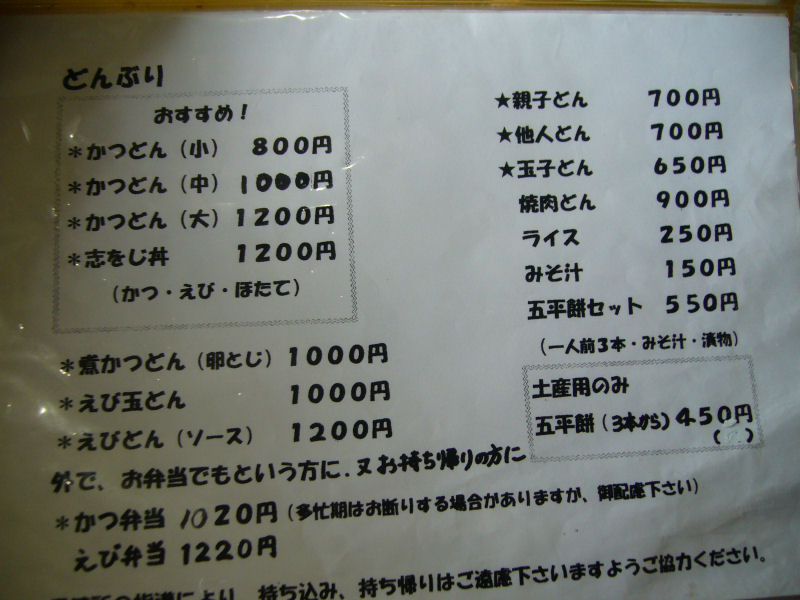 どんぶり
おすすめ!
＊かつどん（小） 800円
＊かつどん（中） 1000円
＊かつどん（大） 1200円
＊志をじ丼 1200円
（かつ・えび・ほたて）
＊煮かつどん（卵とじ） 1000円
＊えび玉どん 1000円
＊えびどん（ソース） 1200円
★親子どん 700円
★他人どん 700円
★玉子どん 650円
焼肉どん 900円
ライス 250円
みそ汁 150円
五平餅セット 550円
（一人前3本・みそ汁・漬物）
土産用のみ
五平餅（3本から） 450円
外で、お弁当でもという方に．又お持ち帰りの方に
＊かつ弁当 1020円（多忙期はお断りする場合がありますが、御配慮下さい）
えび弁当 1220円
の指導により、持ち込み、持ち帰りはご遠慮下さいますようご協力ください。